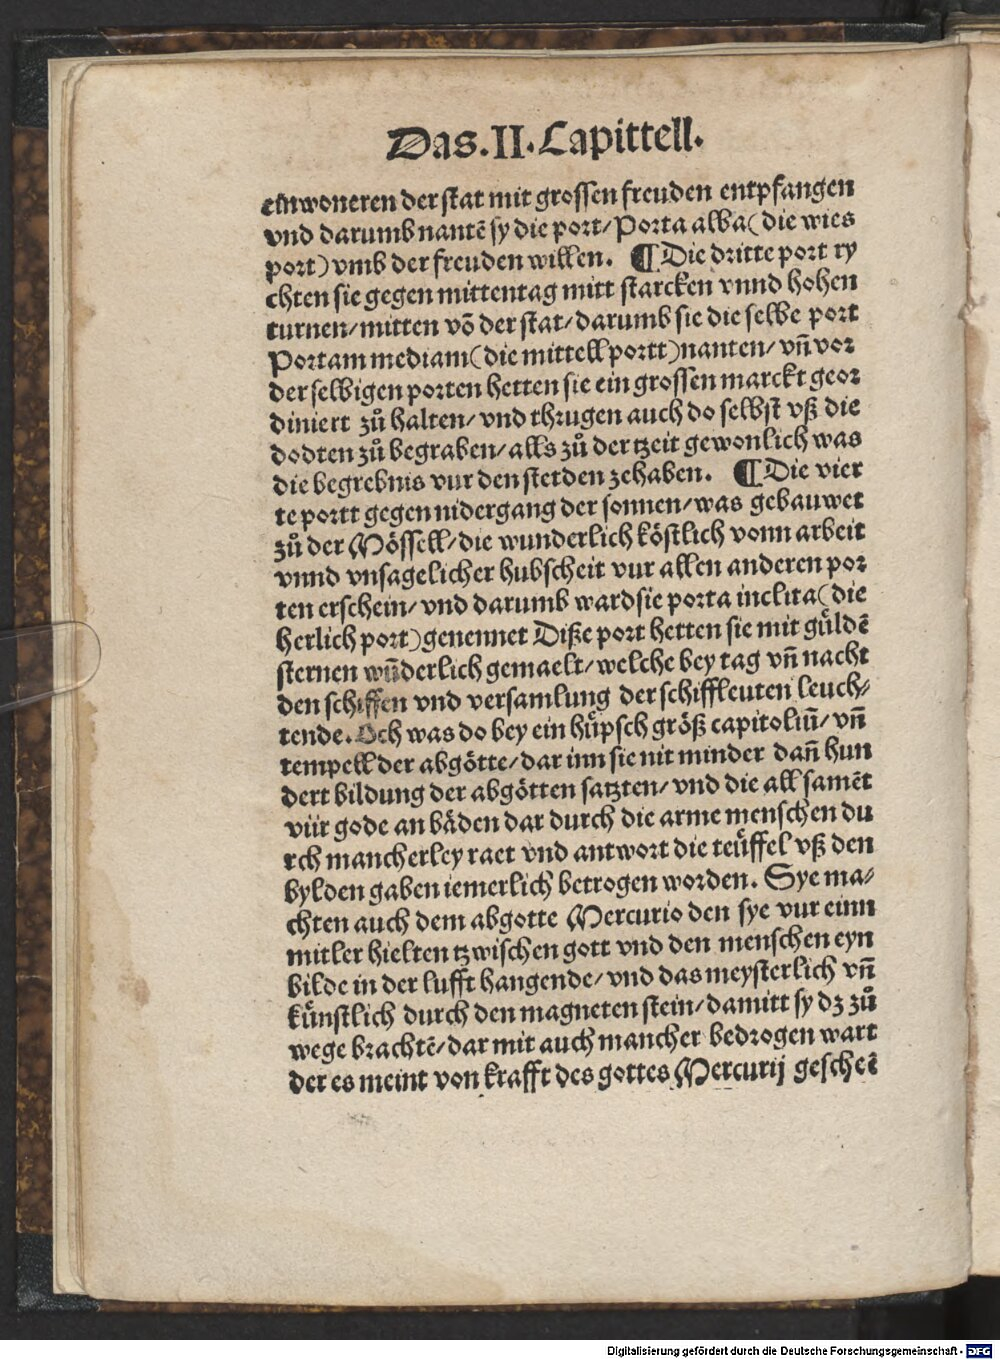 Das.II.Capittell.
einwoneren der stat mit grossen freuden entpfangen
vnd darumb nantē sy die port/Porta alba(die wies
port)vmb der freuden willen. ¶Die dritte port ry
chten sie gegen mittentag mitt starcken vnnd hohen
turnen/mitten vō der stat/darumb sie die selbe port
Portam mediam(die mittell portt)nanten/vn̄ vor
der selbigen porten hetten sie ein grossen marckt geor
diniert zů halten/vnd thrugen auch do selbst vß die
dodten zů begraben/alls zů der tzeit gewonlich was
die begrebnis vur den stetden zehaben. ¶Die vier
te portt gegen nidergang der sonnen/was gebauwet
zů der Mössell/die wunderlich köstlich vonn arbeit
vnnd vnsagelicher hubscheit vur allen anderen por
ten erschein/vnd darumb wardsie porta inclita(die
herlich port)genennet Diße port hetten sie mit güldē
sternen wūderlich gemaelt/welche bey tag vn̄ nacht
den schiffen vnd versamlung der schiffleuten leuch⸗
tende. Och was do bey ein hüpsch größ capitoliū/vn̄
tempell der abgötte/dar inn sie nit minder dan̄ hun
dert bildung der abgötten satzten/vnd die all samēt
vür gode an bäden dar durch die arme menschen du
rch mancherley raet vnd antwort die teüffel vß den
bylden gaben iemerlich betrogen worden. Sye ma⸗
chten auch dem abgotte Mercurio den sye vur einn
mitler hielten tzwischen gott vnd den menschen eyn
bilde in der lufft hangende/vnd das meysterlich vn̄
künstlich durch den magneten stein/damitt sy dz zů
wege brachtē/dar mit auch mancher bedrogen wart
der es meint von krafft des gottes Mercurij gescheē
Digitalisierung gefördert durch die Deutsche Forschungsgemeinschaft - DFG